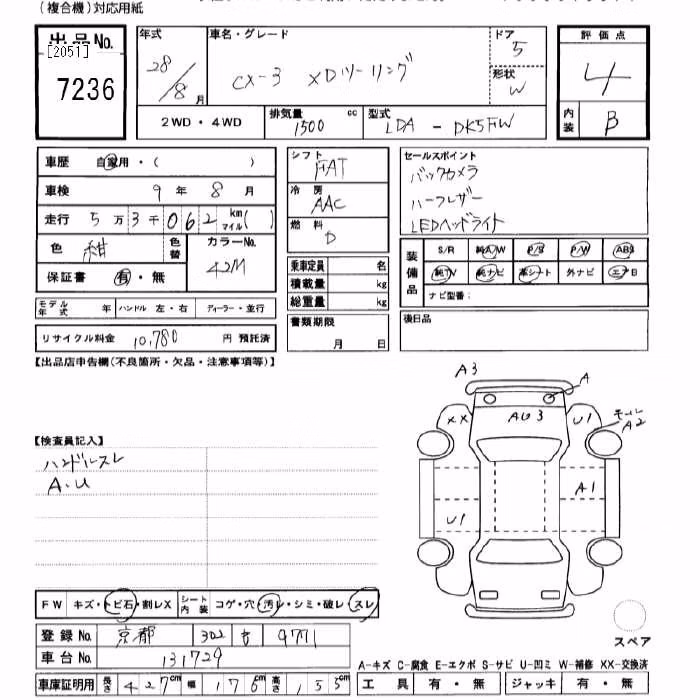 (複合機)対応用紙
出品No.
[2051]
7236
年式
28/8月
車名・グレード
CX-3 XDツーリング
ドア
5
形状
W
評価点
4
内装
B
2WD・4WD
排気量 1500 cc
型式 LDA - DK5FW
車歴 自家用・( )
車検 9年 8月
走行 5万3千062 km マイル( )
色 紺 色替
カラーNo. 42M
保証書 有・無
シフト
FAT
冷房
AAC
燃料
D
乗車定員 名
積載量 kg
総重量 kg
書類期限
月 日
セールスポイント
バックカメラ
ハーフレザー
LEDヘッドライト
装備品
S/R 純A/W P/S P/W ABS
純TV 純ナビ 革シート 外ナビ エアB
ナビ型番:
後日品
モデル年式 年 ハンドル 左・右 ディーラー・並行
リサイクル料金 10,780 円 預託済
【出品店申告欄(不良箇所・欠品・注意事項等)】
【検査員記入】
ハンドルスレ
A・U
A3
A
XX
AU3
U1
モール
A2
A1
U1
スペア
FW キズ・トビ石・割レX シート内装 コゲ・穴・汚レ・シミ・破レ・スレ
登録No. 京都 302 9771
車台No. 131729
車庫証明用 長さ 427cm 幅 176cm 高さ 155cm
A-キズ C-腐食 E-エクボ S-サビ U-凹ミ W-補修 XX-交換済
工具 有・無 ジャッキ 有・無